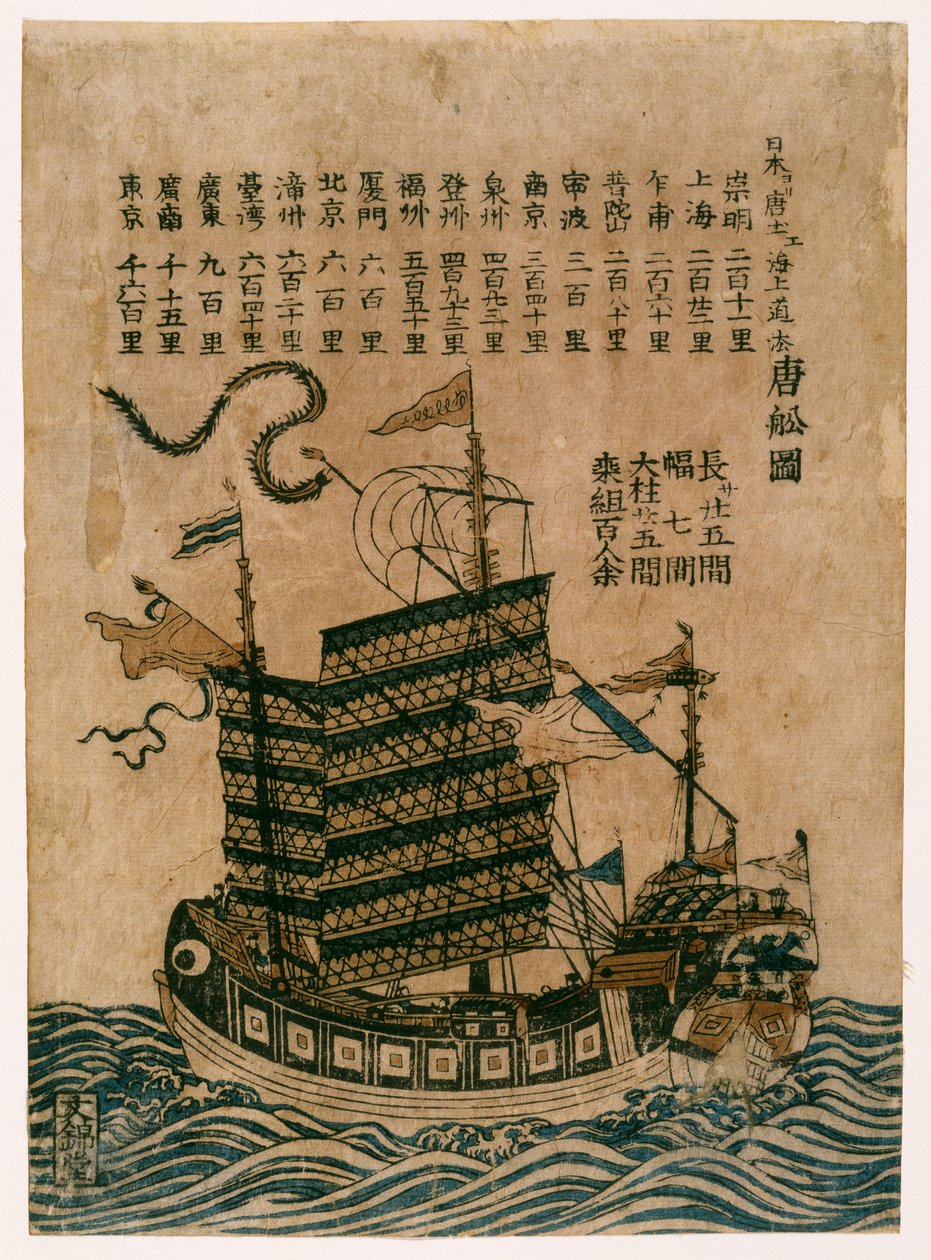 日本ヨリ唐土エ海上道法 唐舩圖
崇明 二百十一里
上海 二百廿二里
乍甫 二百六十里
普陀山 二百八十里
寧波 三百里
南京 三百四十里
泉州 里
登州 四百九十三里
福州 五百五十里
厦門 六百里
北京 六百里
漳州 六百二十里
臺湾 六百四十里
廣東 九百里
廣南 千十五里
東京 千六百里
長サ廿五間
幅 七間
大柱廿五間
乗組百人余
文錦堂